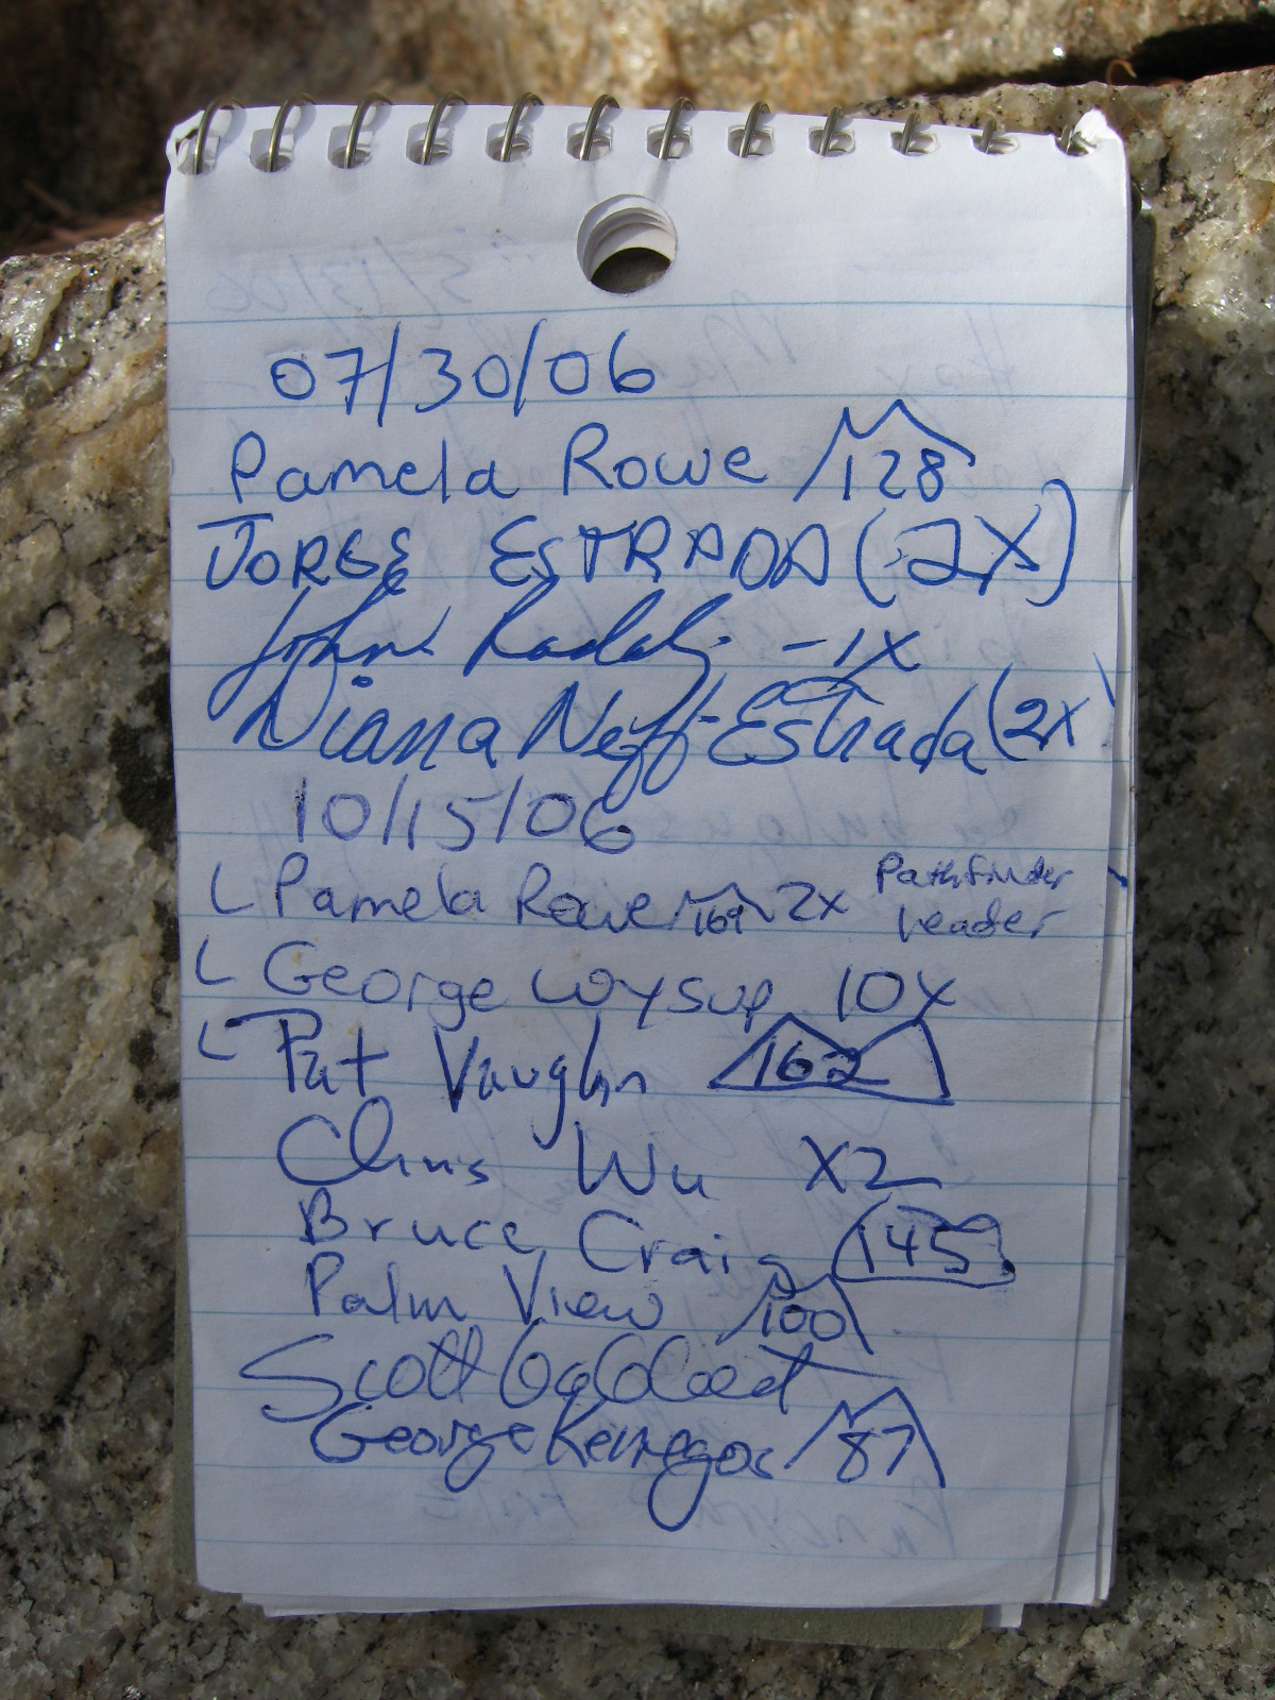 07/30/06
Pamela Rowe 128
JORGE ESTRADA (2X)
John - 1X
Diana Neff-Estrada (2X)
10/15/06
L Pamela Rowe 169 2x Pathfinder Leader
L George Wysup 10X
L Pat Vaughn 162
Chris Wu X2
Bruce Craig 145
Palm View 100
Scott
George Kenegos 87